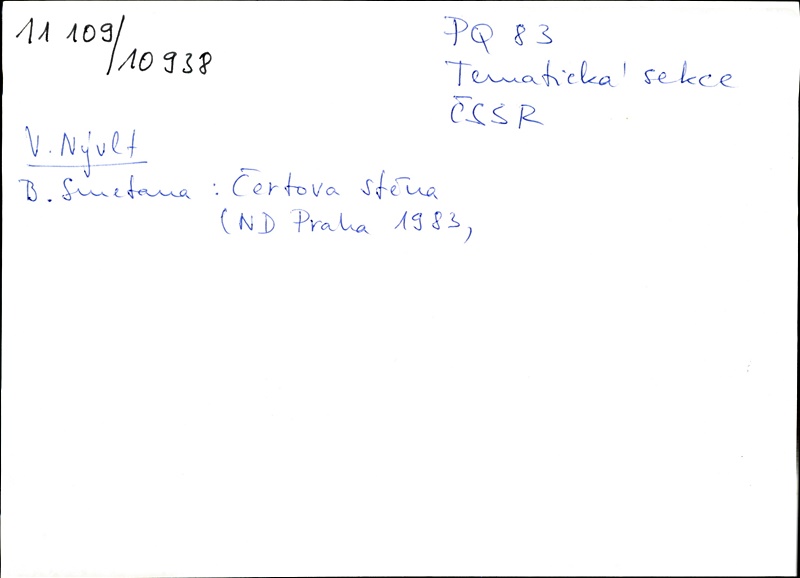 11 109/
10 938
PQ 83
Tematická sekce
ČSSR
V. Nývlt
B. Smetana : Čertova stěna
(ND Praha 1983,